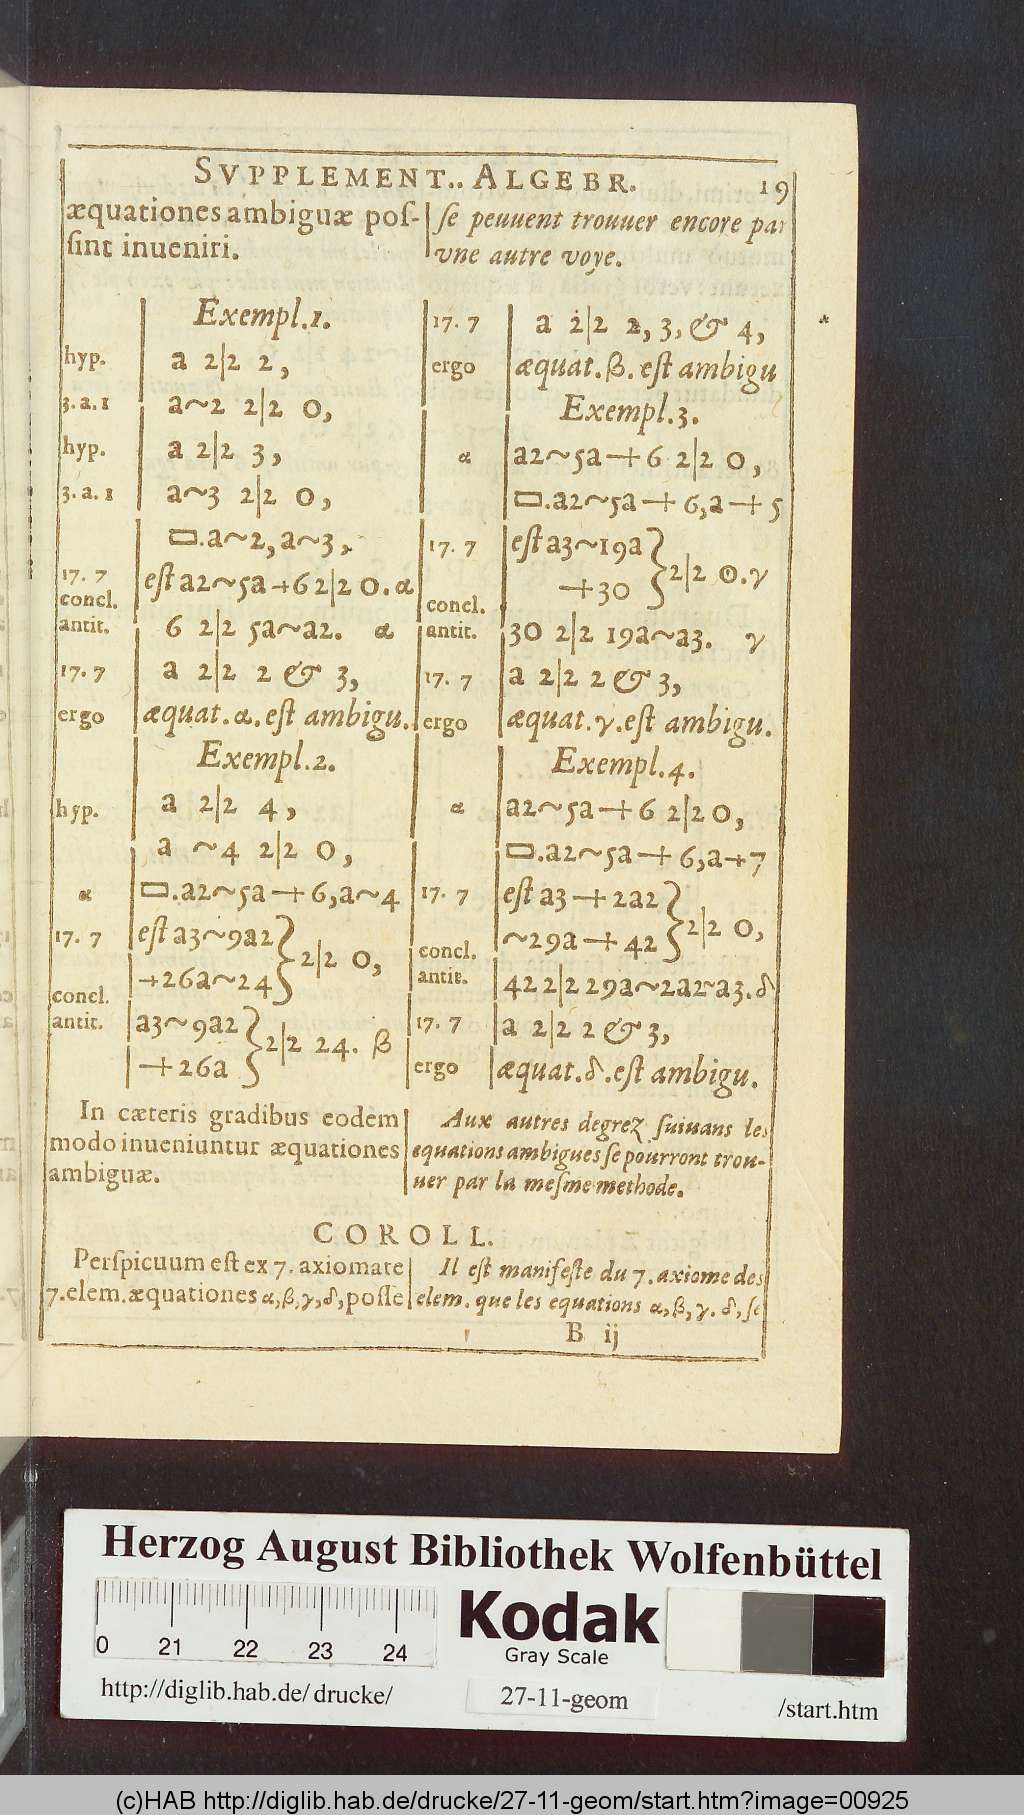 SVPPLEMENT.. ALGEBR. 19
æquationes ambiguæ poſ-
ſint inueniri.
ſe peuuent trouuer encore par
vne autre voye.
Exempl.1.
hyp. a 2|2 2,
3.a.1 a~2 2|2 0,
hyp. a 2|2 3,
3.a.1 a~3 2|2 0,
▭.a~2, a~3,
17. 7 eſt a2~5a+6 2|2 0. α
concl.
antit. 6 2|2 5a~a2. α
17. 7 a 2|2 2 & 3,
ergo æquat.α.eſt ambigu.
Exempl.2.
hyp. a 2|2 4,
a ~4 2|2 0,
α ▭.a2~5a+6, a~4
17. 7 eſt a3~9a2
+26a~24} 2|2 0,
concl.
antit. a3~9a2
+26a} 2|2 24. β
17. 7 a 2|2 2, 3, & 4,
ergo æquat.β.eſt ambigu
Exempl.3.
α a2~5a+6 2|2 0,
▭.a2~5a+6, a+5
17. 7 eſt a3~19a
+30} 2|2 0.γ
concl.
antit. 30 2|2 19a~a3. γ
17. 7 a 2|2 2 & 3,
ergo æquat.γ.eſt ambigu.
Exempl.4.
α a2~5a+6 2|2 0,
▭.a2~5a+6, a+7
17. 7 eſt a3+2a2
~29a+42} 2|2 0,
concl.
antit. 42 2|2 29a~2a2~a3.δ
17. 7 a 2|2 2 & 3,
ergo æquat.δ.eſt ambigu.
In cæteris gradibus eodem
modo inueniuntur æquationes
ambiguæ.
Aux autres degrez ſuiuans les
equations ambigues ſe pourront trou-
uer par la meſme methode.
COROLL.
Perſpicuum eſt ex 7. axiomate
7.elem.æquationes α,β,γ,δ, poſſe
Il eſt manifeſte du 7. axiome des
elem. que les equations α, β, γ. δ, ſe
B ij
Herzog August Bibliothek Wolfenbüttel
0 21 22 23 24
Kodak
Gray Scale
http://diglib.hab.de/drucke/ 27-11-geom /start.htm
(c)HAB http://diglib.hab.de/drucke/27-11-geom/start.htm?image=00925